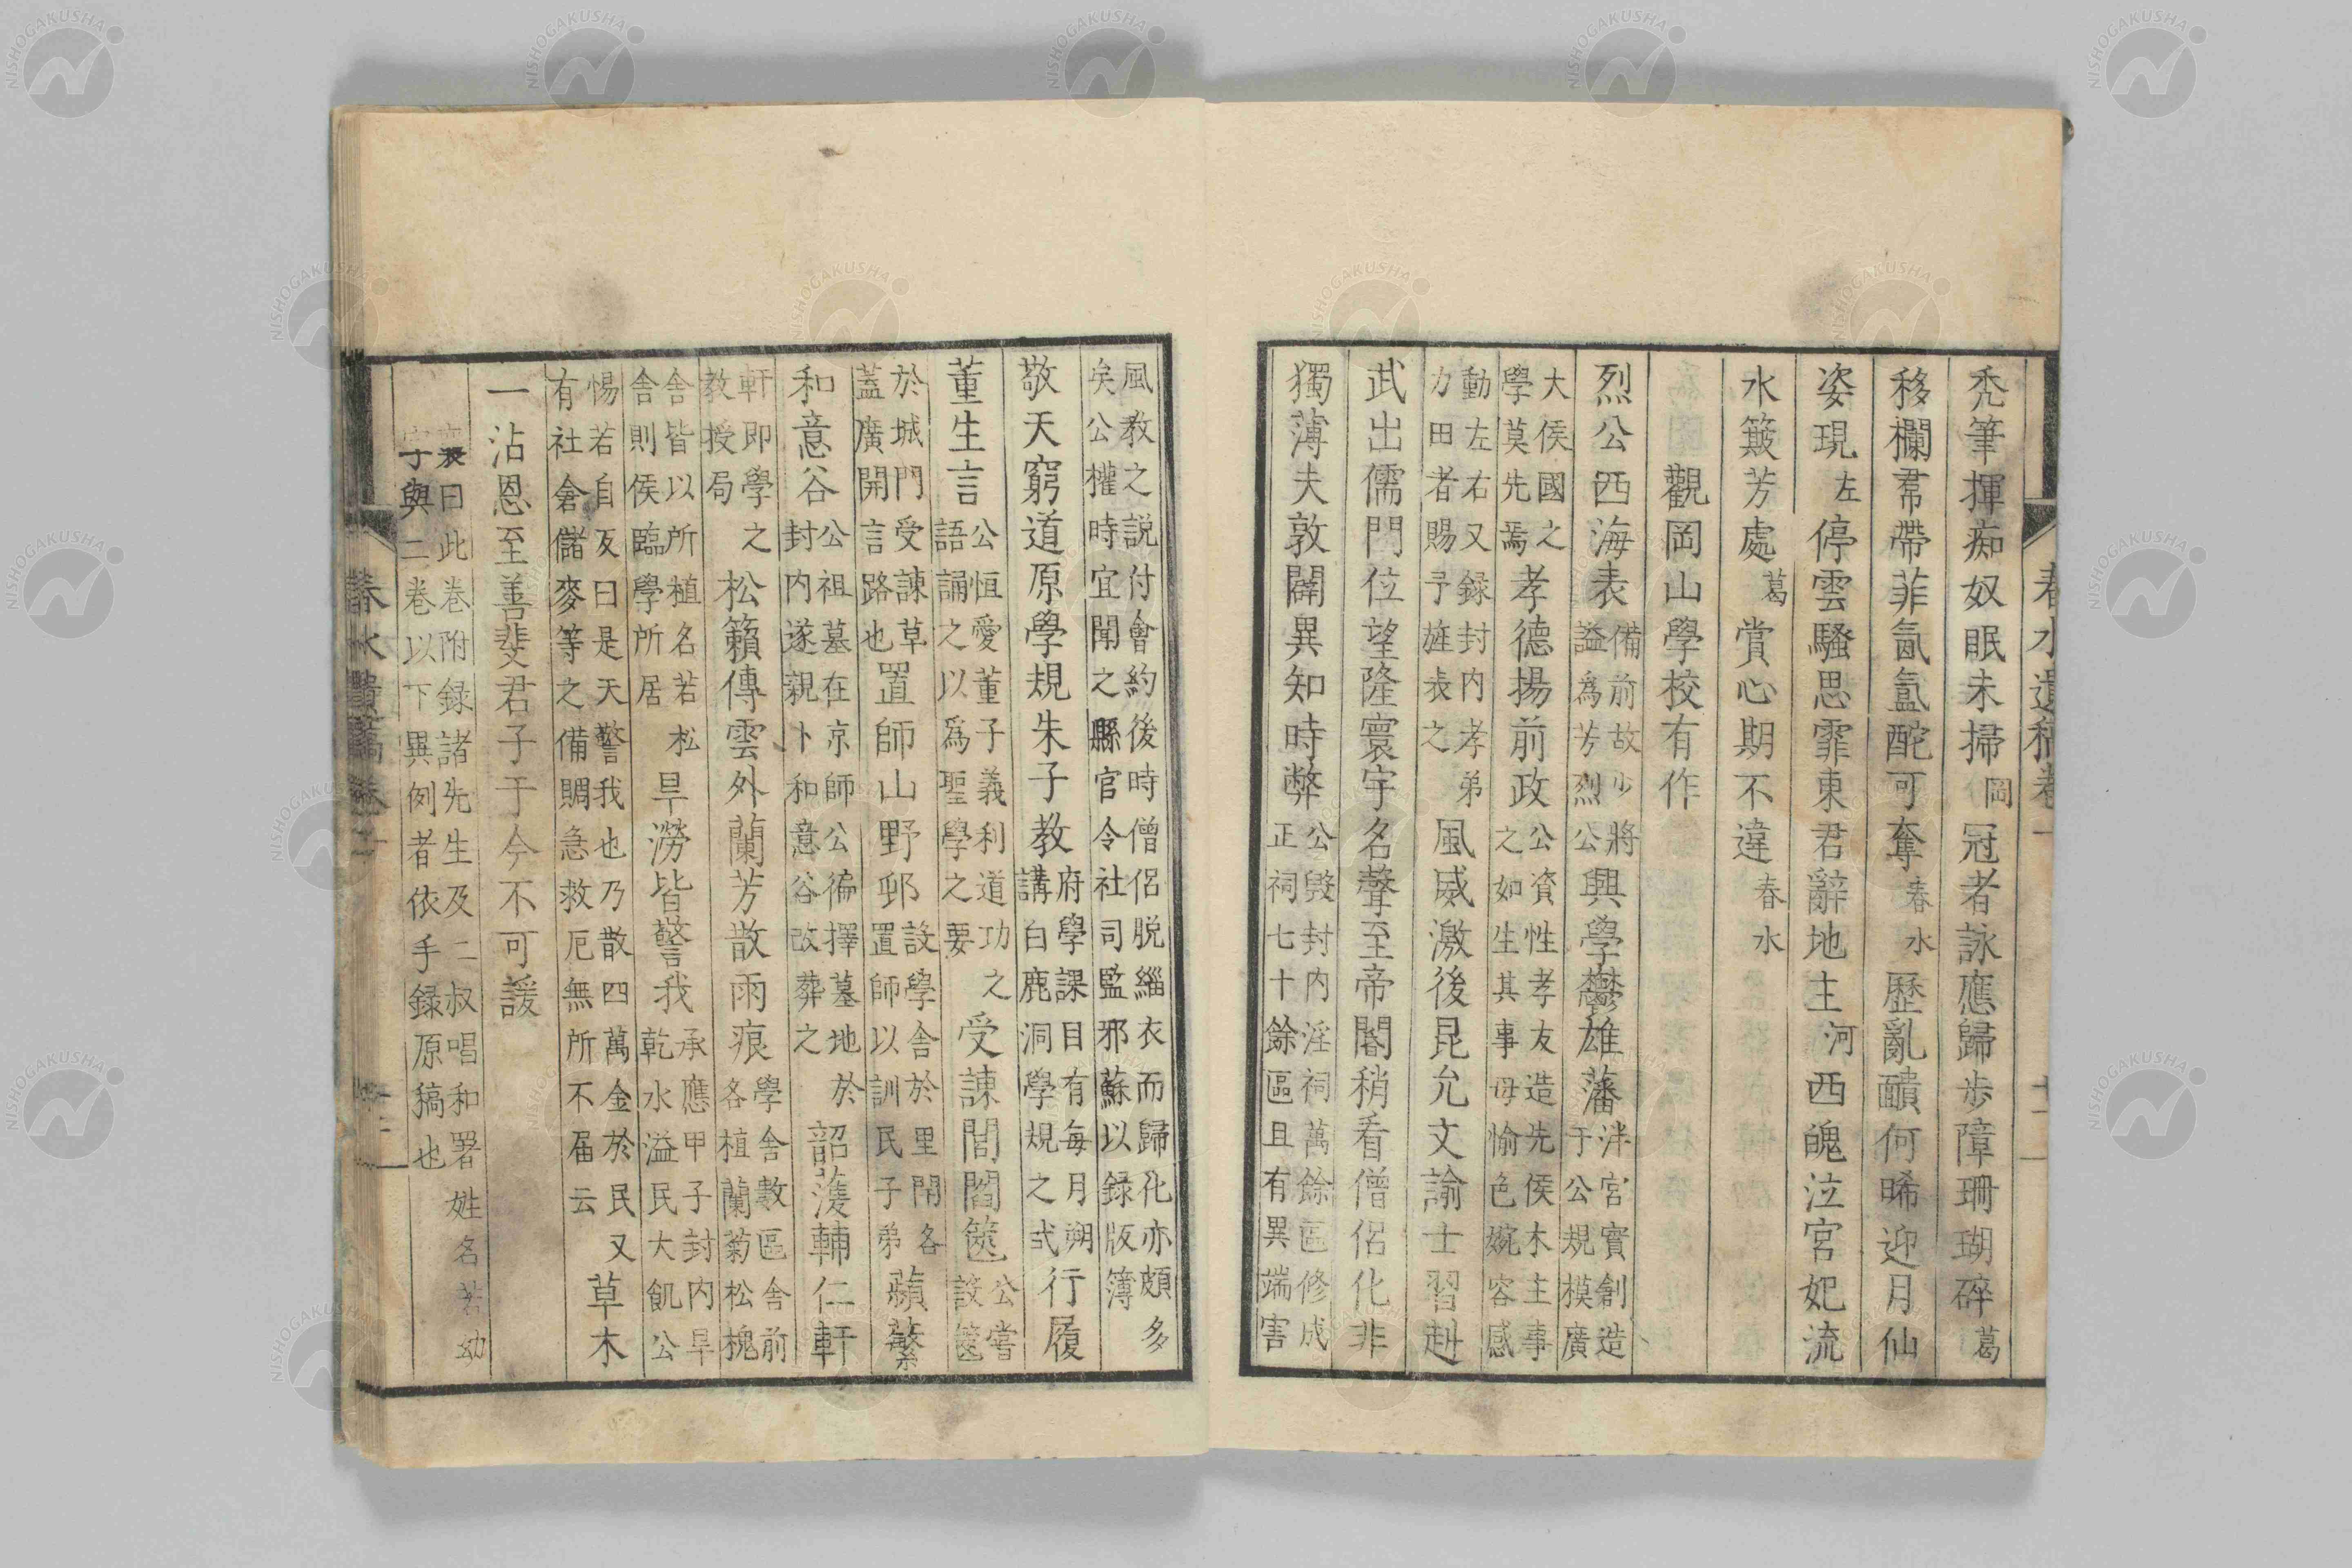 春水遺稿卷一 十一
禿筆揮痴奴眠未掃岡冠者詠應歸歩障珊瑚碎葛
移欄帬帶菲氤氳酡可奪春水歷亂醻何晞迎月仙
姿現左停雲騷思霏東君辭地主河西醜泣宮妃流
水簸芳處葛賞心期不違春水
觀岡山學校有作
烈公西海表備前故少將謚爲芳烈公興學鬱雄藩泮宮實創造于公規模廣
大侯國之學莫先焉孝德揚前政公資性孝友造先侯木主事之如生其事母愉色婉容感
動左右又録封内孝弟力田者賜予旌表之風威激後昆允文諭士習赳
武出儒門位望隆寰宇名聲至帝閽稍看僧侶化非
獨薄夫敦闢異知時弊公毀封内淫祠萬餘區修成正祠七十餘區且有異端害
風教之説付會約後時僧侶脱緇衣而歸化亦頗多矣公權時宜聞之縣官令社司監邪蘇以録版簿
敬天窮道原學規朱子教府學課目有每月朔講白鹿洞學規之式行履
董生言公恒愛董子義利道功之語誦之以爲聖學之要受諫誾閤篋公嘗設篋
於城門受諫草蓋廣開言路也置師山野邨設學舍於里閈各置師以訓民子弟蘋蘩
和意谷公祖墓在京師公徧擇墓地於封内遂親卜和意谷改葬之韶頀輔仁軒
軒即學之教授局松籟傳雲外蘭芳散雨痕學舍數區舍前各植蘭菊松槐
舍皆以所植名若松舍則侯臨學所居旱澇皆警我承應甲子封内旱乾水溢民大飢公
惕若自反曰是天警我也乃散四萬金於民又有社倉儲麥等之備賙急救厄無所不届云草木
一沾恩至善斐君子于今不可諼
襄曰此卷附録諸先生及二叔唱和署姓名若幼字與二卷以下異例者依手録原稿也
春水遺稿卷